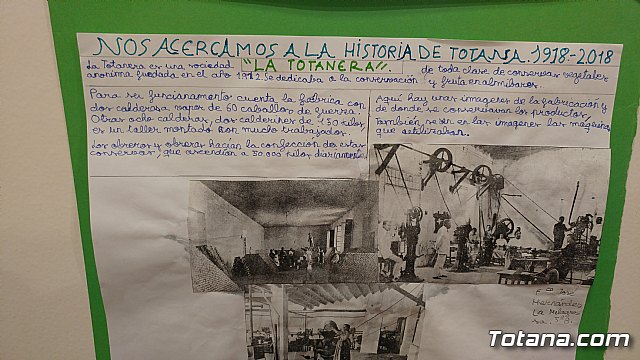 NOS ACERCAMOS A LA HISTORIA DE TOTANA. 1918-2.018
"LA TOTANERA"
La Totanera es una sociedad
anónima fundada en el año 1912. Se dedicaba a la conservación
de toda clase de conservas vegetales
y fruta en almíbares.
Para su funcionamiento cuenta la fábrica con
dos calderas a vapor de 60 caballos de fuerza.
Otras ocho calderas, dos calderines de 430 kilos,
es un taller montado con mucho trabajados.
Los obreros y obreras hacían la confección de estas
conservas, que ascendían a 30.000 kilos diariamente.
Aquí hay unas imágenes de la fabricación y
de donde se conservaban los productos,
también se ven en las imágenes las máquinas
que utilizaban.
Fco José
Hernández
La Milagrosa
5ºB
Totana.com